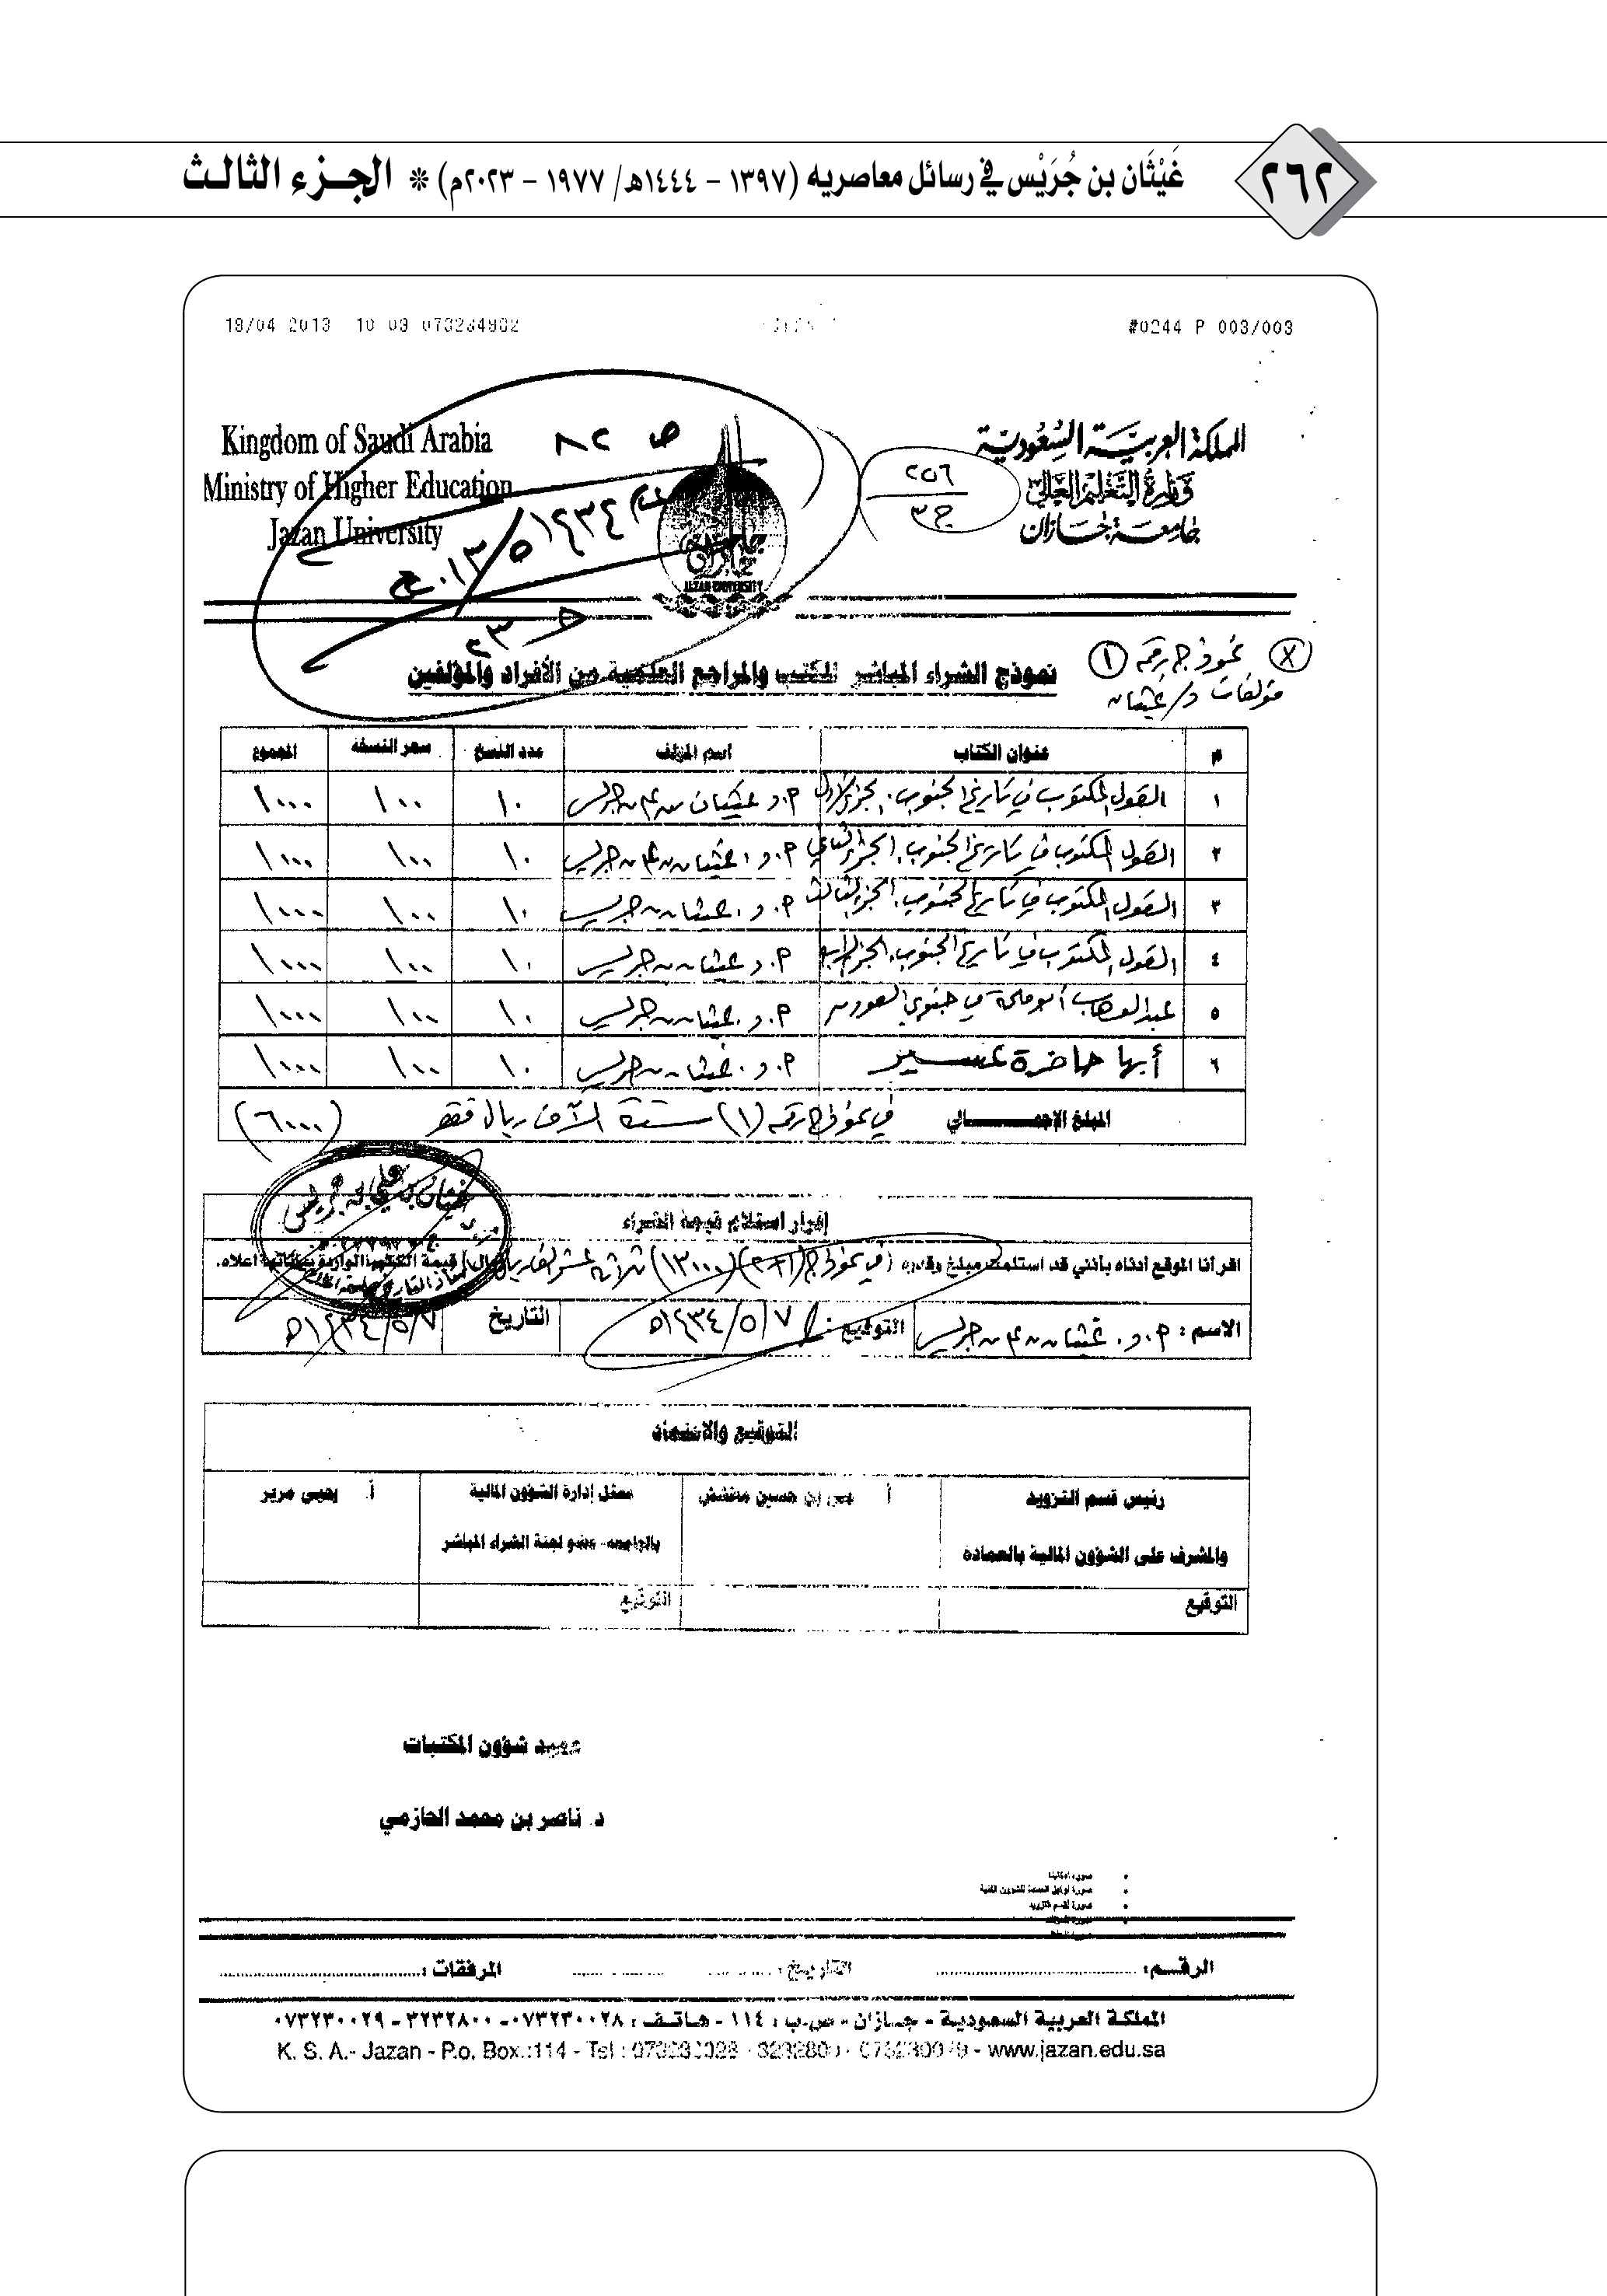 ٢٦٢
غَيْثَان بن جُرَيْس في رسائل معاصريه (١٣٩٧ – ١٤٤٤هـ/ ١٩٧٧ – ٢٠٢٣م) * الجزء الثالث
18/04 2013 10 09
#0244 P 003/003
المملكة العربية السعودية
وزارة التعليم العالي
جامعة جازان
Kingdom of Saudi Arabia
Ministry of Higher Education
Jazan University
٢٥٦
ج ٣
ص ٨٢
JAZAN UNIVERSITY
نموذج رقم (١)
مؤلفات د/ غيثان
نموذج الشراء المباشر للكتب والمراجع العلمية من الأفراد والمؤلفين
م عنوان الكتاب اسم المؤلف عدد النسخ سعر النسخة المجموع
١ القول المكتوب في تاريخ الجنوب. الجزء الأول أ.د غيثان بن علي بن جريس ١٠ ١٠٠ ١٠٠٠
٢ القول المكتوب في تاريخ الجنوب. الجزء الثاني أ.د. غيثان بن علي بن جريس ١٠ ١٠٠ ١٠٠٠
٣ القول المكتوب في تاريخ الجنوب. الجزء الثالث أ.د. غيثان بن جريس ١٠ ١٠٠ ١٠٠٠
٤ القول المكتوب في تاريخ الجنوب. الجزء الرابع أ.د غيثان بن جريس ١٠ ١٠٠ ١٠٠٠
٥ عبدالوهاب أبو ملحة في جنوبي السعودية أ.د. غيثان بن جريس ١٠ ١٠٠ ١٠٠٠
٦ أبها حاضرة عسير أ.د. غيثان بن جريس ١٠ ١٠٠ ١٠٠٠
المبلغ الإجمالي في نموذج رقم (١) ستة آلاف ريال فقط (٦٠٠٠)
إقرار استلام قيمة الشراء
اقر أنا الموقع أدناه بأنني قد استلمت مبلغ وقدره (في نموذج (١+٢) (١٣٠٠٠) ثلاثة عشر ألف ريال) قيمة الكتب الواردة بياناتها أعلاه.
الاسم : أ.د. غيثان بن علي بن جريس التوقيع : ١٤٣٤/٥/٧هـ التاريخ ١٤٣٤/٥/٧هـ
التوقيع والاعتماد
رئيس قسم التزويد أ. بن حسين ممثل إدارة الشؤون المالية أ. يحيى مرير
والمشرف على الشؤون المالية بالعمادة بالجامعة- عضو لجنة الشراء المباشر
التوقيع التوقيع
عميد شؤون المكتبات
د. ناصر بن محمد الحازمي
الرقم: التاريخ: المرفقات :
المملكة العربية السعودية - جازان - ص.ب : ١١٤ - هاتف : ٠٧٣٢٣٠٠٢٨ - ٣٢٣٢٨٠٠ - ٠٧٣٢٣٠٠٢٩
K. S. A.- Jazan - P.o. Box.:114 - Tel : - www.jazan.edu.sa